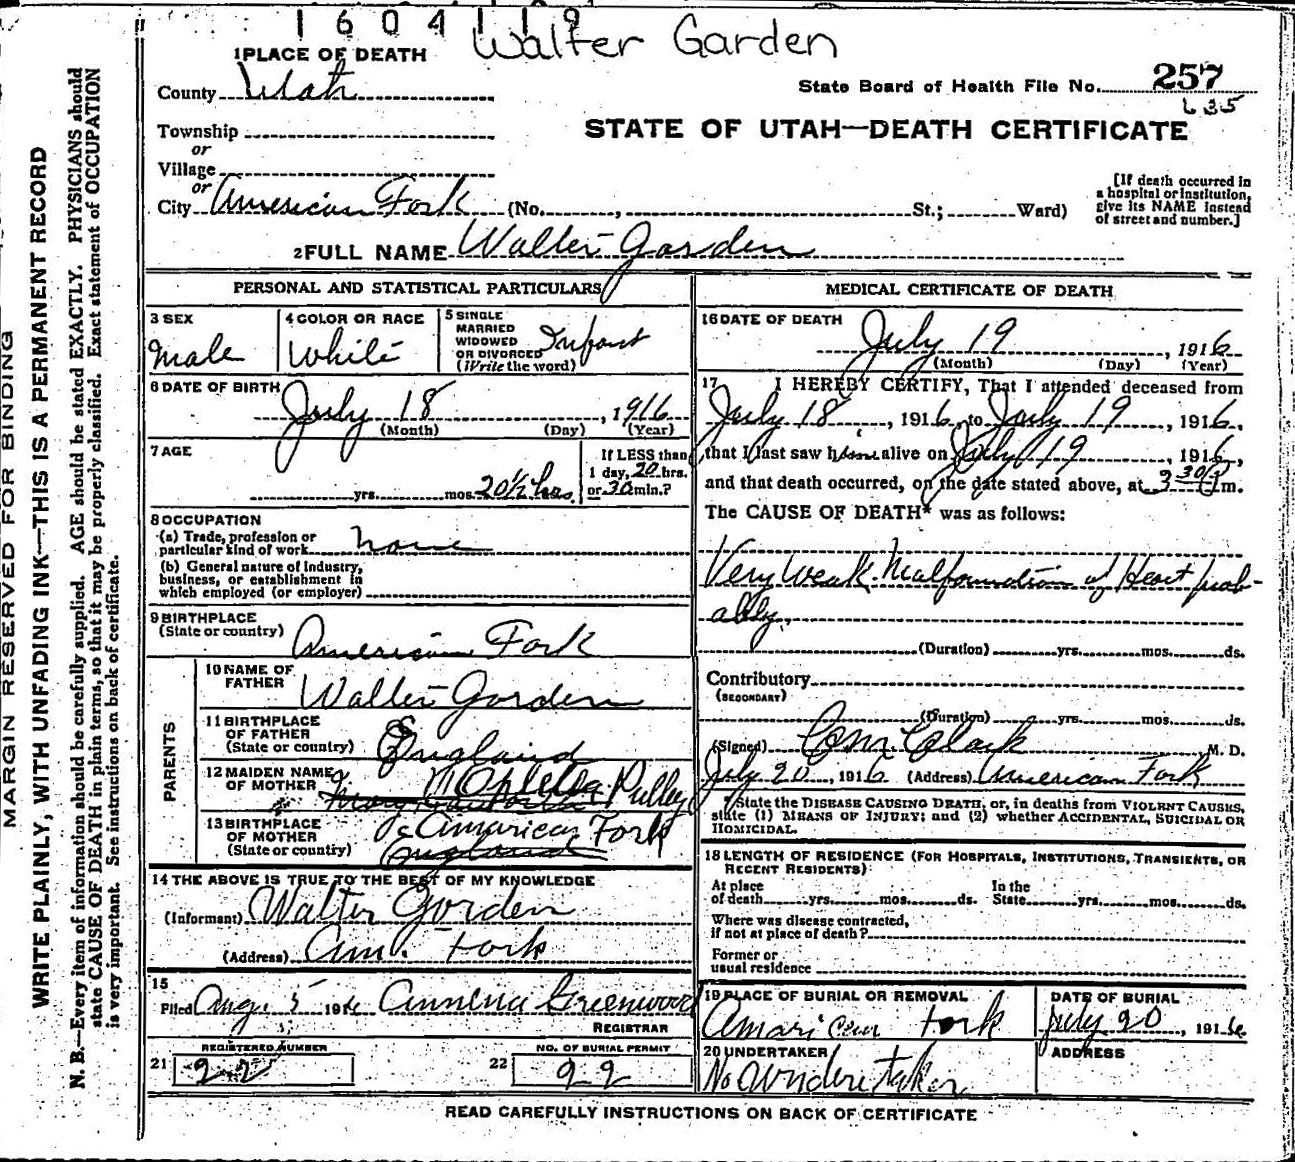 1604119
Walter Garden
1 PLACE OF DEATH
County Utah
State Board of Health File No. 257
635
Township
or
STATE OF UTAH—DEATH CERTIFICATE
Village
or
City American Fork (No. , St.; Ward)
[If death occurred in
a hospital or institution,
give its NAME instead
of street and number.]
2 FULL NAME Walter Garden
PERSONAL AND STATISTICAL PARTICULARS
3 SEX
Male
4 COLOR OR RACE
White
5 SINGLE
MARRIED
WIDOWED
OR DIVORCED
(Write the word)
Infant
6 DATE OF BIRTH
July 18, 1916
(Month) (Day) (Year)
7 AGE
yrs. mos. 20½ hrs.
If LESS than
1 day, 20 hrs.
or 30 min.?
8 OCCUPATION
(a) Trade, profession or
particular kind of work none
(b) General nature of industry,
business, or establishment in
which employed (or employer)
9 BIRTHPLACE
(State or country) American Fork
PARENTS
10 NAME OF
FATHER
Walter Gorden
11 BIRTHPLACE
OF FATHER
(State or country) England
12 MAIDEN NAME
OF MOTHER
Pulley
13 BIRTHPLACE
OF MOTHER
(State or country)
American Fork
England
14 THE ABOVE IS TRUE TO THE BEST OF MY KNOWLEDGE
(Informant) Walter Gorden
(Address) Am. Fork
15
Filed Aug 5 1916 Greenwood
REGISTRAR
REGISTERED NUMBER
21 22
NO. OF BURIAL PERMIT
22 22
MEDICAL CERTIFICATE OF DEATH
16 DATE OF DEATH
July 19, 1916
(Month) (Day) (Year)
17 I HEREBY CERTIFY, That I attended deceased from
July 18, 1916, to July 19, 1916,
that I last saw him alive on July 19, 1916,
and that death occurred, on the date stated above, at 3 30 P m.
The CAUSE OF DEATH* was as follows:
Very Weak. Malformation of Heart prob-
ably.
(Duration) yrs. mos. ds.
Contributory
(SECONDARY)
(Duration) yrs. mos. ds.
(Signed) Clark M. D.
July 20, 1916 (Address) American Fork
*State the DISEASE CAUSING DEATH, or, in deaths from VIOLENT CAUSES,
state (1) MEANS OF INJURY; and (2) whether ACCIDENTAL, SUICIDAL OR
HOMICIDAL.
18 LENGTH OF RESIDENCE (FOR HOSPITALS, INSTITUTIONS, TRANSIENTS, OR
RECENT RESIDENTS)
At place
of death yrs. mos. ds.
In the
State yrs. mos. ds.
Where was disease contracted,
if not at place of death?
Former or
usual residence
19 PLACE OF BURIAL OR REMOVAL
American Fork
DATE OF BURIAL
July 20, 1916
20 UNDERTAKER
No Undertaker
ADDRESS
READ CAREFULLY INSTRUCTIONS ON BACK OF CERTIFICATE
MARGIN RESERVED FOR BINDING
WRITE PLAINLY, WITH UNFADING INK—THIS IS A PERMANENT RECORD
N. B.—Every item of information should be carefully supplied. AGE should be stated EXACTLY. PHYSICIANS should
state CAUSE OF DEATH in plain terms, so that it may be properly classified. Exact statement of OCCUPATION
is very important. See instructions on back of certificate.